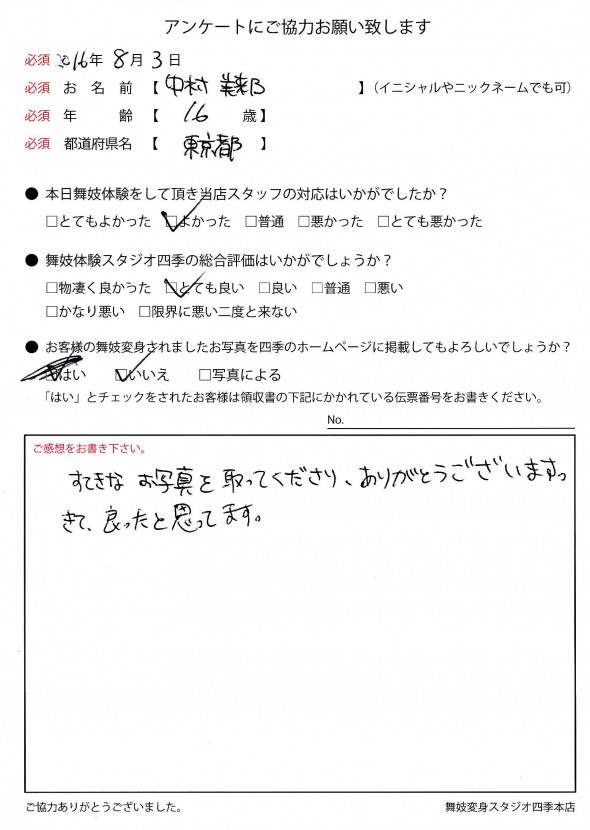 アンケートにご協力お願い致します
必須 2016年 8月 3日
必須 お名前 【中村 】(イニシャルやニックネームでも可)
必須 年齢 【 16 歳】
必須 都道府県名 【 東京都 】
● 本日舞妓体験をして頂き当店スタッフの対応はいかがでしたか?
□とてもよかった □よかった □普通 □悪かった □とても悪かった
● 舞妓体験スタジオ四季の総合評価はいかがでしょうか?
□物凄く良かった □とても良い □良い □普通 □悪い
□かなり悪い □限界に悪い二度と来ない
● お客様の舞妓変身されましたお写真を四季のホームページに掲載してもよろしいでしょうか?
□はい □いいえ □写真による
「はい」とチェックをされたお客様は領収書の下記にかかれている伝票番号をお書きください。
No.
ご感想をお書き下さい。
すてきなお写真を取ってくださり、ありがとうございますっ
きて、良ったと思ってます。
ご協力ありがとうございました。 舞妓変身スタジオ四季本店